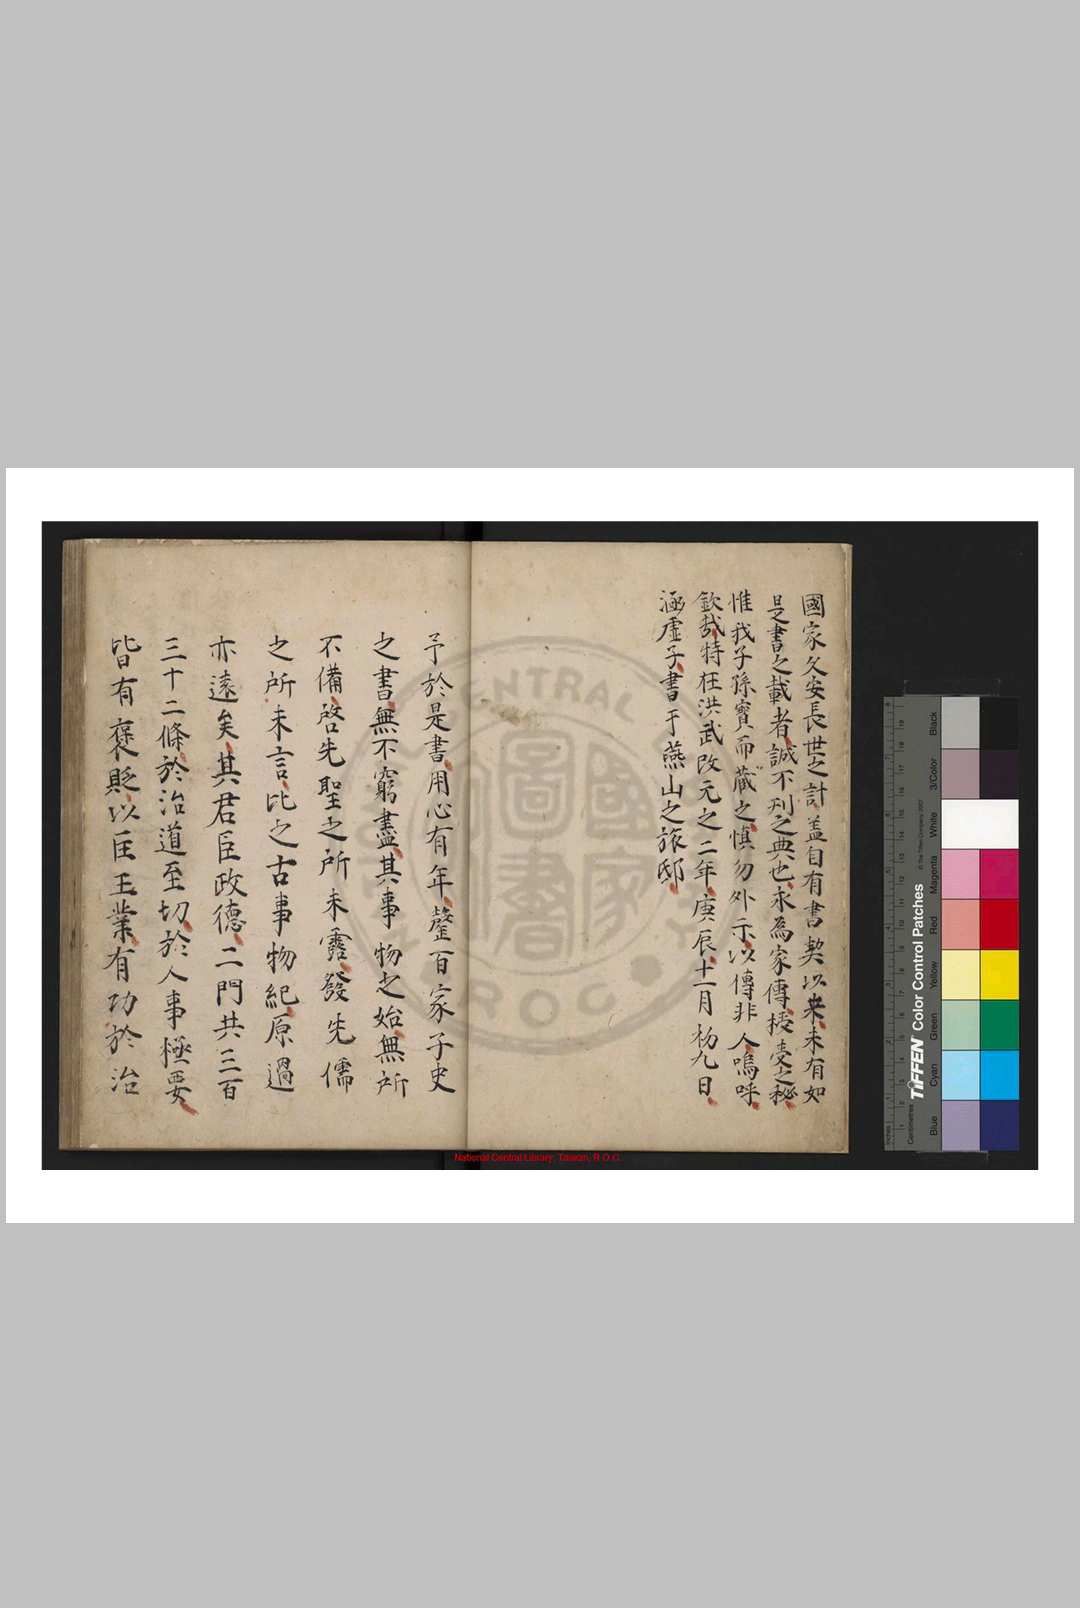 國家久安長世之計盖自有書契以来未有如
是書之載者誠不刋之典也永為家傳授受之秘
惟我子孫寳而藏之慎勿外示以傳非人嗚呼
欽㢤特在洪武改元之二年庚辰十一月初九日
涵虗子書于燕山之旅邸
予於是書用心有年罄百家子史
之書無不窮盡其事物之始無所
不備啓先聖之所未露發先儒
之所未言比之古事物紀原過
亦遠矣其君臣政德二門共三百
三十二條於治道至切於人事極要
皆有褒貶以匡王業有功於治
National Central Library, Taiwan, R.O.C.
CENTRAL
R.O.C
國家
圖書
TIFFEN Color Control Patches
© The Tiffen Company, 2007
Inches
Centimetres
Blue
Cyan
Green
Yellow
Red
Magenta
White
3/Color
Black